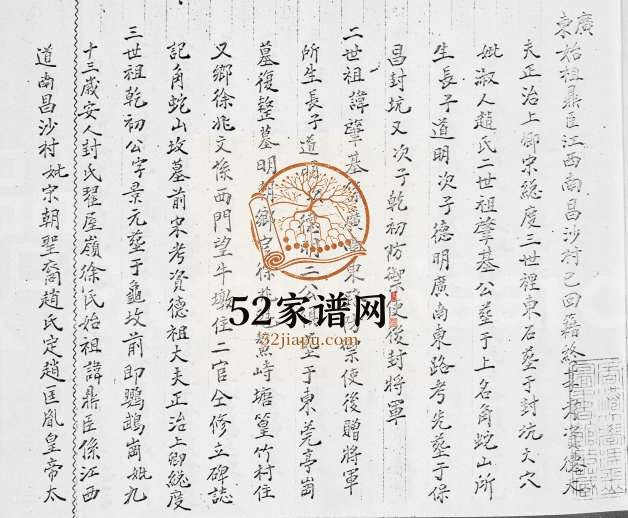 廣東始祖鼎臣江西南昌沙村已回籍終
夫正治上卿宋總度三世裡東石葬于封坑大穴
妣淑人趙氏二世祖肇基公葬于上名角蛇山所
生長子道明次子德明廣南東路考先葬于保
昌封坑又次子乾初防御使後封將軍
二世祖諱肇基 使後贈將軍
所生長子道明 德明二公 葬于東莞亭崗
墓復整墓明朝鄉 徐 塘篁竹村住
又鄉徐兆文係西門望牛墩住二官仝修立碑誌
記角蛇山坟墓前宋考資德祖大夫正治上卿總度
三世祖乾初公字景元葬于龜坟前即鸚鵡崗妣九
十三歲安人封氏翟屋嶺徐氏始祖諱鼎臣係江西
道南昌沙村妣宋朝聖裔趙氏定趙匡胤皇帝太
52家谱网
52jiapu.com